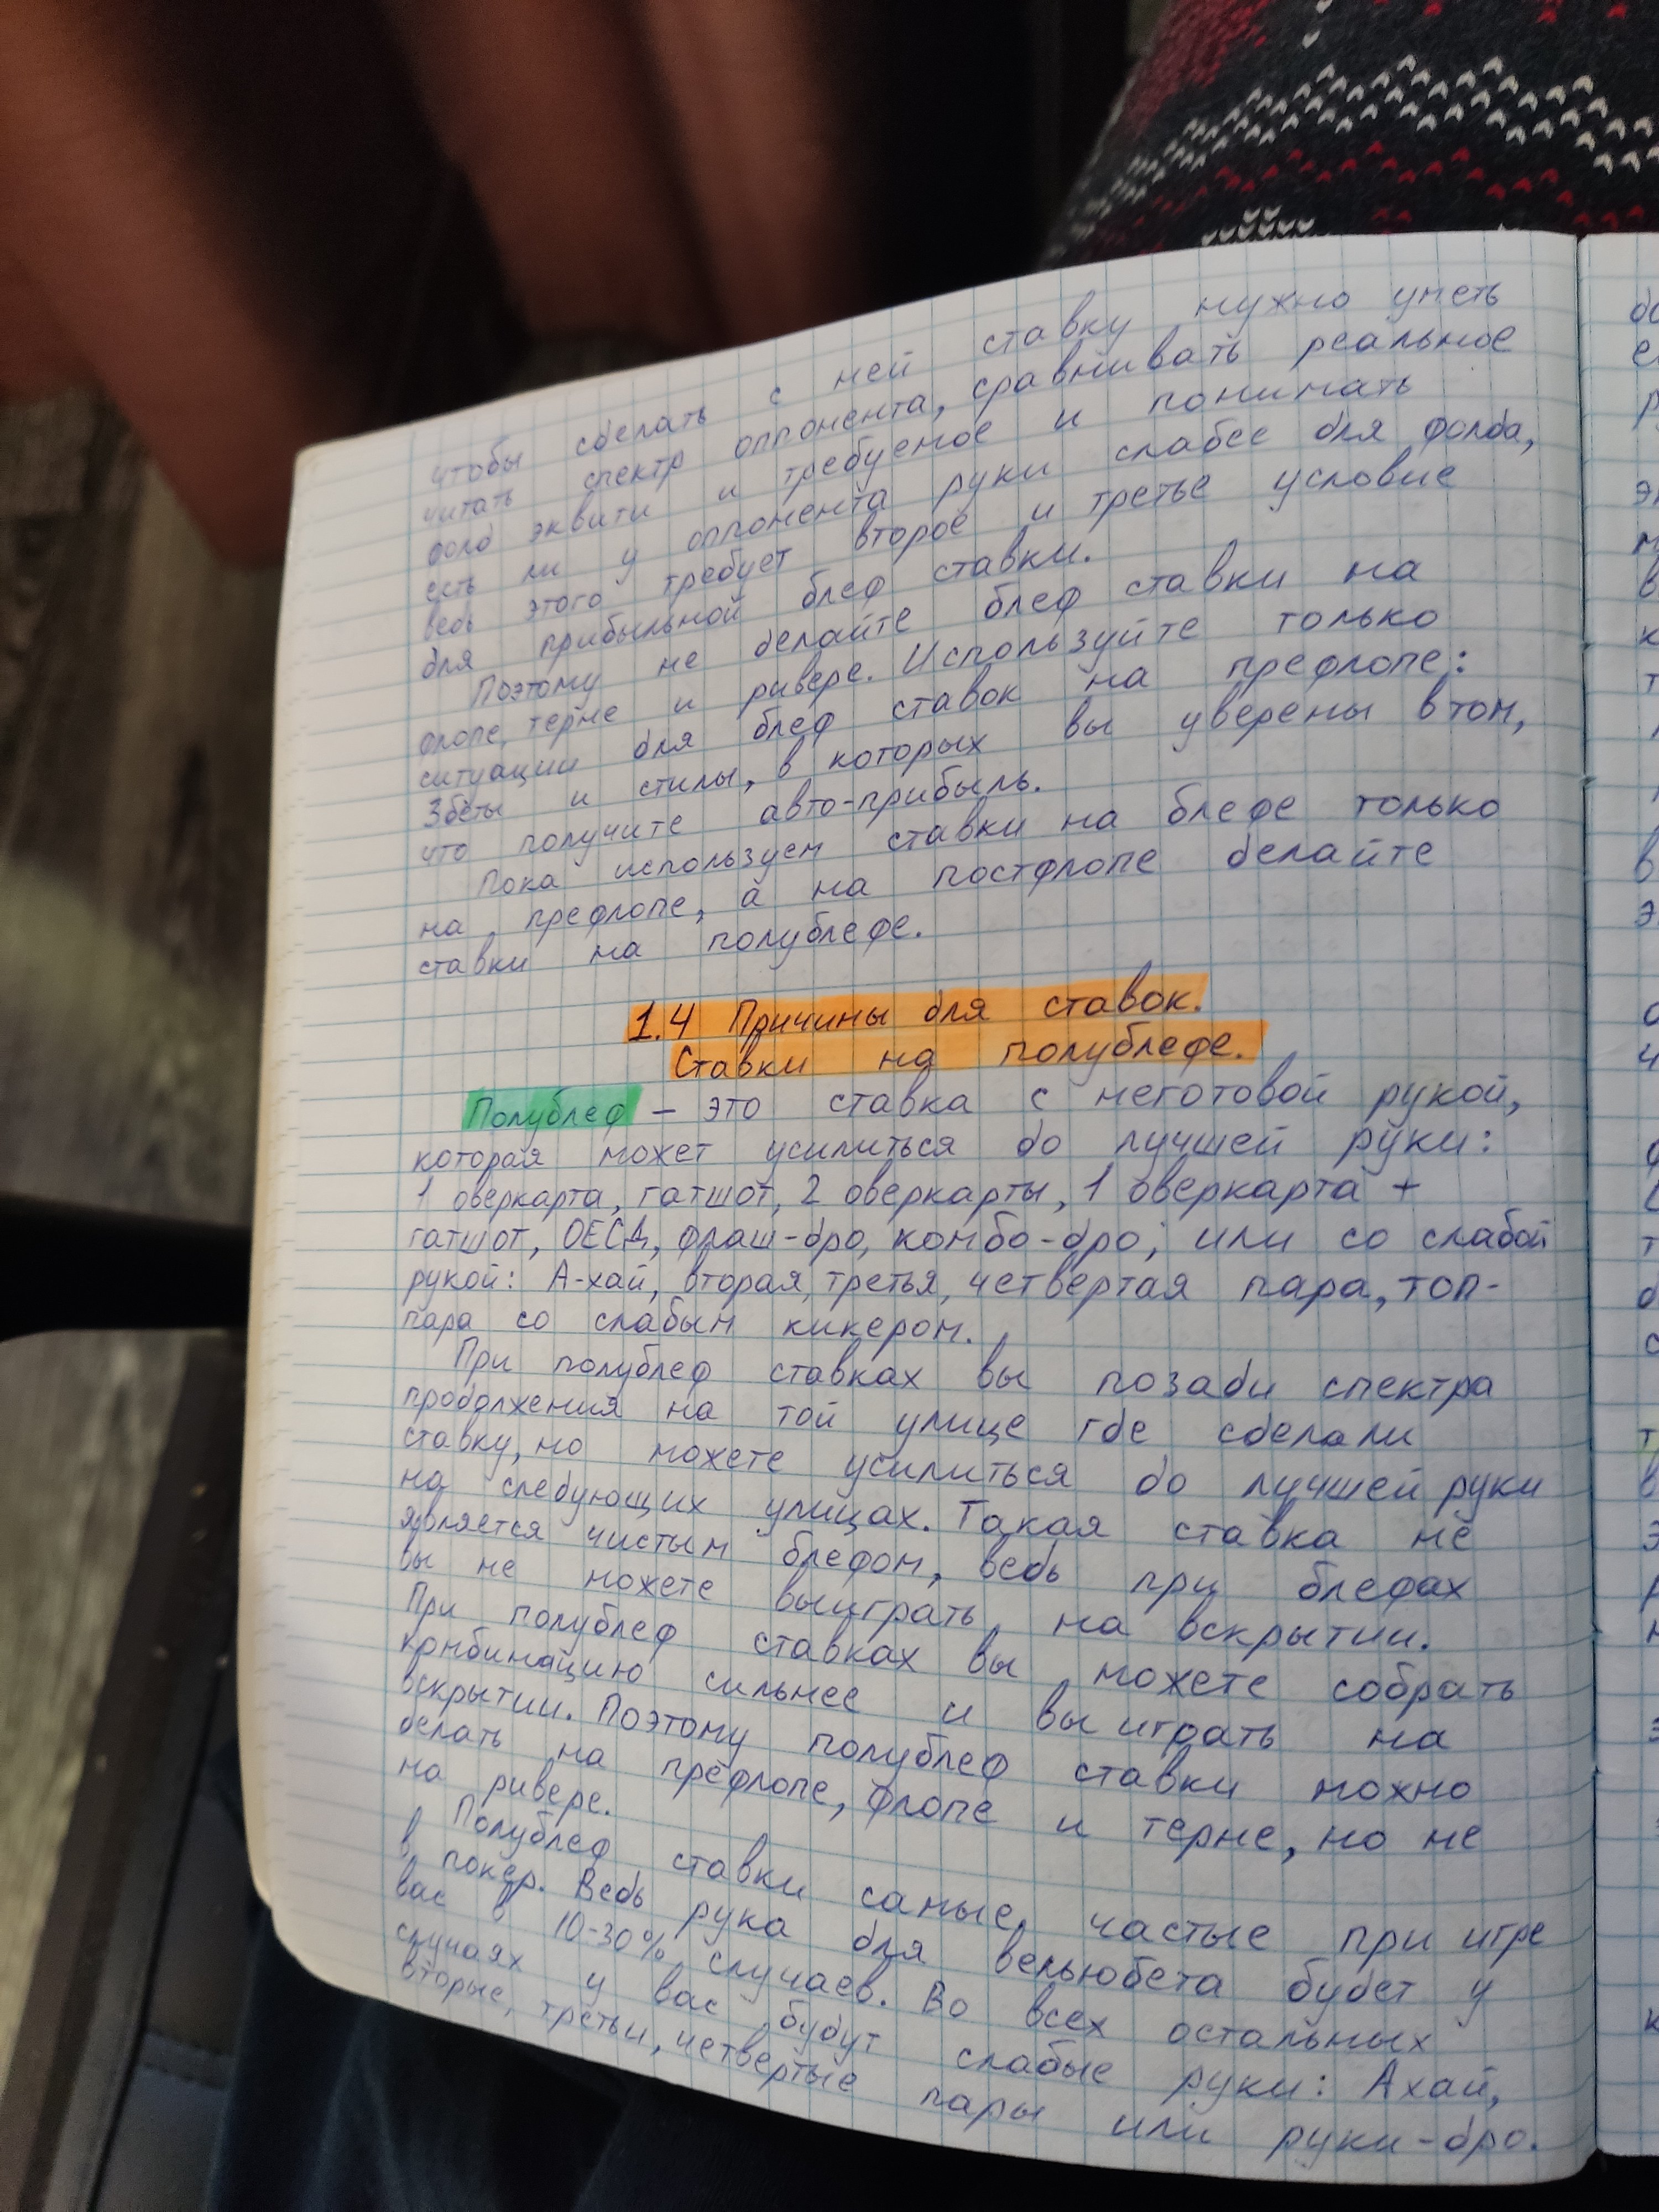 чтобы сделать с ней ставку нужно уметь
читать спектр оппонента, сравнивать реальное
фолд эквити и требуемое и понимать
есть ли у оппонента руки слабее для фолда,
ведь этого требует второе и третье условие
для прибыльной блеф ставки.
Поэтому не делайте блеф ставки на
флопе, терне и ривере. Используйте только
ситуации для блеф ставок на префлопе:
3беты и стилы, в которых вы уверены в том,
что получите авто-прибыль.
Пока используем ставки на блефе только
на префлопе, а на постфлопе делайте
ставки на полублефе.
1.4 Причины для ставок.
Ставки на полублефе.
Полублеф – это ставка с неготовой рукой,
которая может усилиться до лучшей руки:
1 оверкарта, гатшот, 2 оверкарты, 1 оверкарта +
гатшот, ОЕСД, флаш-дро, комбо-дро; или со слабой
рукой: А-хай, вторая, третья, четвертая пара, топ-
пара со слабым кикером.
При полублеф ставках вы позади спектра
продолжения на той улице где сделали
ставку, но можете усилиться до лучшей руки
на следующих улицах. Такая ставка не
является чистым блефом, ведь при блефах
вы не можете выиграть на вскрытии.
При полублеф ставках вы можете собрать
комбинацию сильнее и выиграть на
вскрытии. Поэтому полублеф ставки можно
делать на префлопе, флопе и терне, но не
на ривере.
Полублеф ставки самые частые при игре
в покер. Ведь рука для вельюбета будет у
вас в 10-30% случаев. Во всех остальных
случаях у вас будут слабые руки: Ахай,
вторые, третьи, четвертые пары или руки-дро.